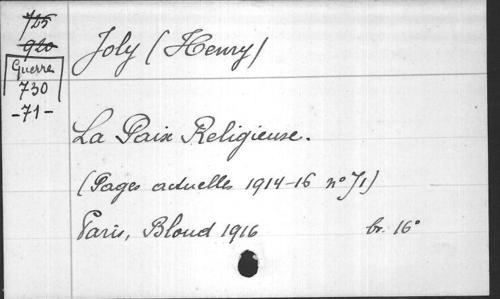 725
920
Guerre
730
-71-
Joly (Henry)
La Paix Religieuse.
(Pages actuelles 1914-16 n° 71)
Paris, Bloud 1916 br. 16°